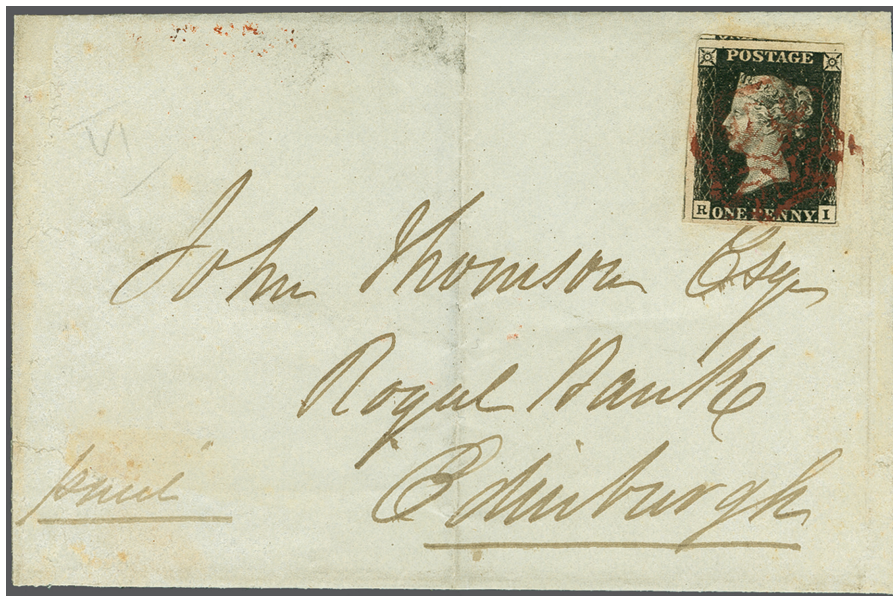 POSTAGE
R ONE PENNY. I
John Thomson Esq
Royal Bank
Edinburgh
paid